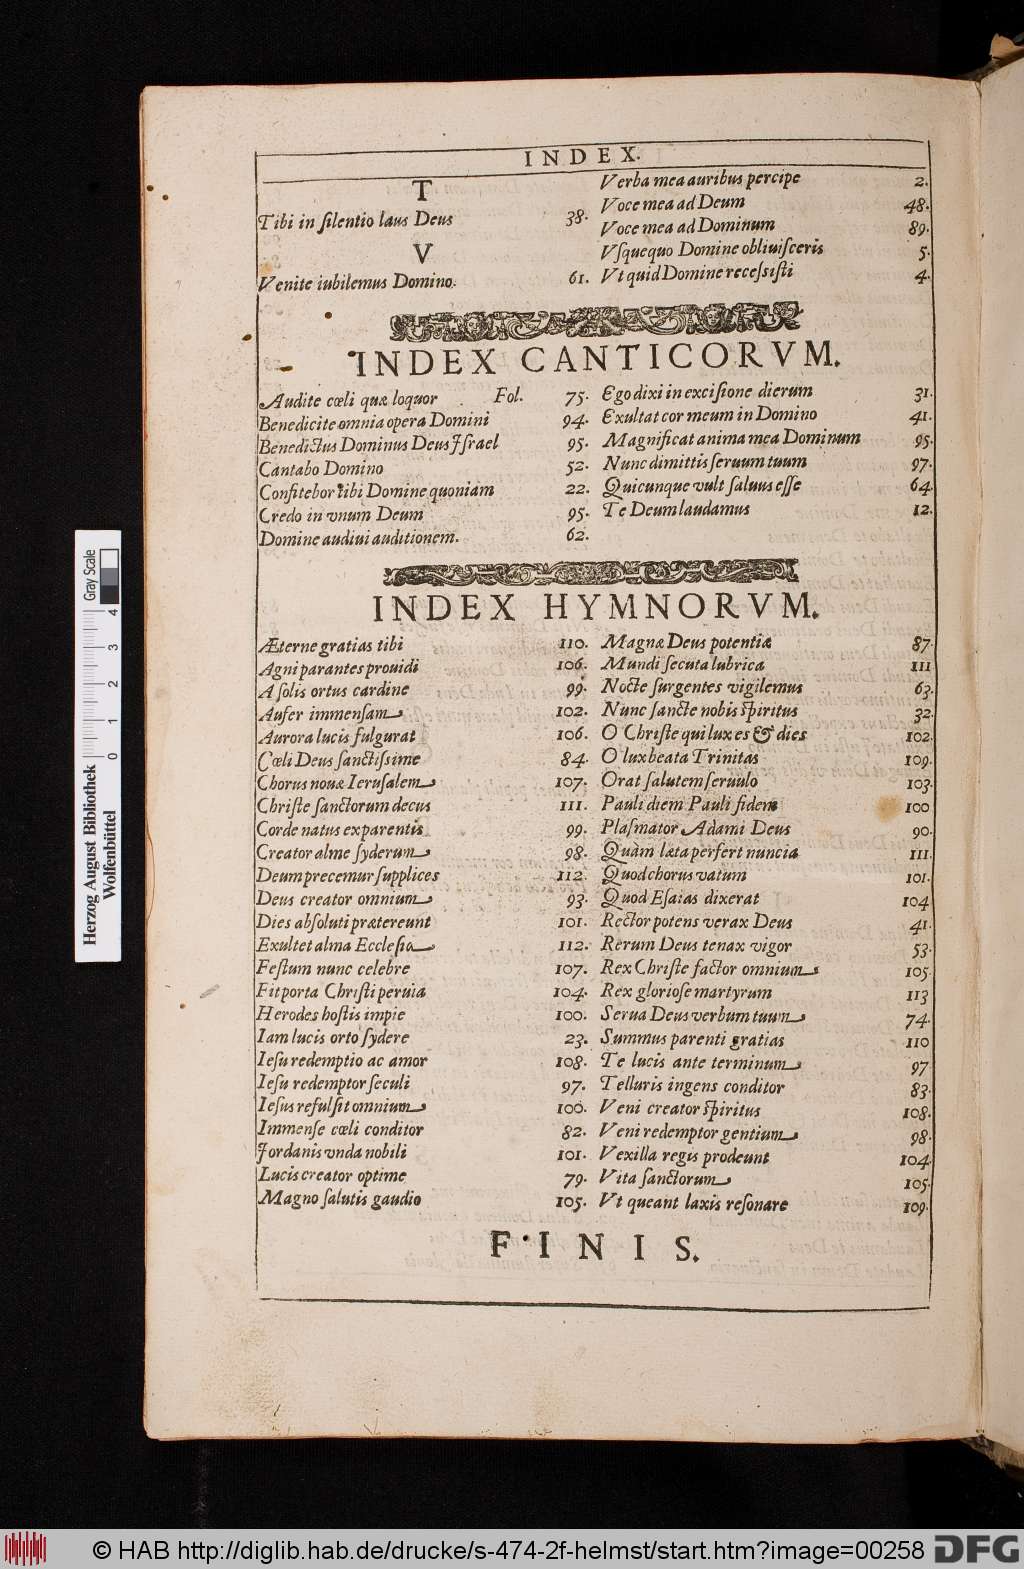 INDEX.
T
Tibi in ſilentio laus Deus 38.
V
Venite iubilemus Domino. 61.
Verba mea auribus percipe 2.
Voce mea ad Deum 48.
Voce mea ad Dominum 89.
Vſquequo Domine obliuiſceris 5.
Vt quid Domine receſsiſti 4.
INDEX CANTICORVM.
Audite cœli quæ loquor Fol. 75.
Benedicite omnia opera Domini 94.
Benedictus Dominus Deus Iſrael 95.
Cantabo Domino 52.
Confitebor tibi Domine quoniam 22.
Credo in vnum Deum 95.
Domine audiui auditionem. 62.
Ego dixi in exciſione dierum 31.
Exultat cor meum in Domino 41.
Magnificat anima mea Dominum 95.
Nunc dimittis ſeruum tuum 97.
Quicunque vult ſaluus eſſe 64.
Te Deum laudamus 12.
INDEX HYMNORVM.
Æterne gratias tibi 110.
Agni parantes prouidi 106.
A ſolis ortus cardine 99.
Aufer immenſam 102.
Aurora lucis fulgurat 106.
Cœli Deus ſanctiſsime 84.
Chorus nouæ Ieruſalem 107.
Chriſte ſanctorum decus 111.
Corde natus ex parentis 99.
Creator alme ſyderum 98.
Deum precemur ſupplices 112.
Deus creator omnium 93.
Dies abſoluti prætereunt 101.
Exultet alma Eccleſia 112.
Feſtum nunc celebre 107.
Fit porta Chriſti peruia 104.
Herodes hoſtis impie 100.
Iam lucis orto ſydere 23.
Ieſu redemptio ac amor 108.
Ieſu redemptor ſeculi 97.
Ieſus refulſit omnium 100.
Immenſe cœli conditor 82.
Iordanis vnda nobili 101.
Lucis creator optime 79.
Magno ſalutis gaudio 105.
Magnæ Deus potentiæ 87.
Mundi ſecuta lubrica 111
Nocte ſurgentes vigilemus 63.
Nunc ſancte nobis ſpiritus 32.
O Chriſte qui lux es & dies 102.
O lux beata Trinitas 109.
Orat ſalutem ſeruulo 103.
Pauli diem Pauli fidem 100
Plaſmator Adami Deus 90.
Quàm læta perfert nuncia 111.
Quod chorus vatum 101.
Quod Eſaias dixerat 104
Rector potens verax Deus 41.
Rerum Deus tenax vigor 53.
Rex Chriſte factor omnium 105.
Rex glorioſe martyrum 113
Serua Deus verbum tuum 74.
Summus parenti gratias 110
Te lucis ante terminum 97
Telluris ingens conditor 83.
Veni creator ſpiritus 108.
Veni redemptor gentium 98.
Vexilla regis prodeunt 104
Vita ſanctorum 105.
Vt queant laxis reſonare 109.
FINIS.
Herzog August Bibliothek
Wolfenbüttel
0 1 2 3 4
Gray Scale
© HAB http://diglib.hab.de/drucke/s-474-2f-helmst/start.htm?image=00258
DFG